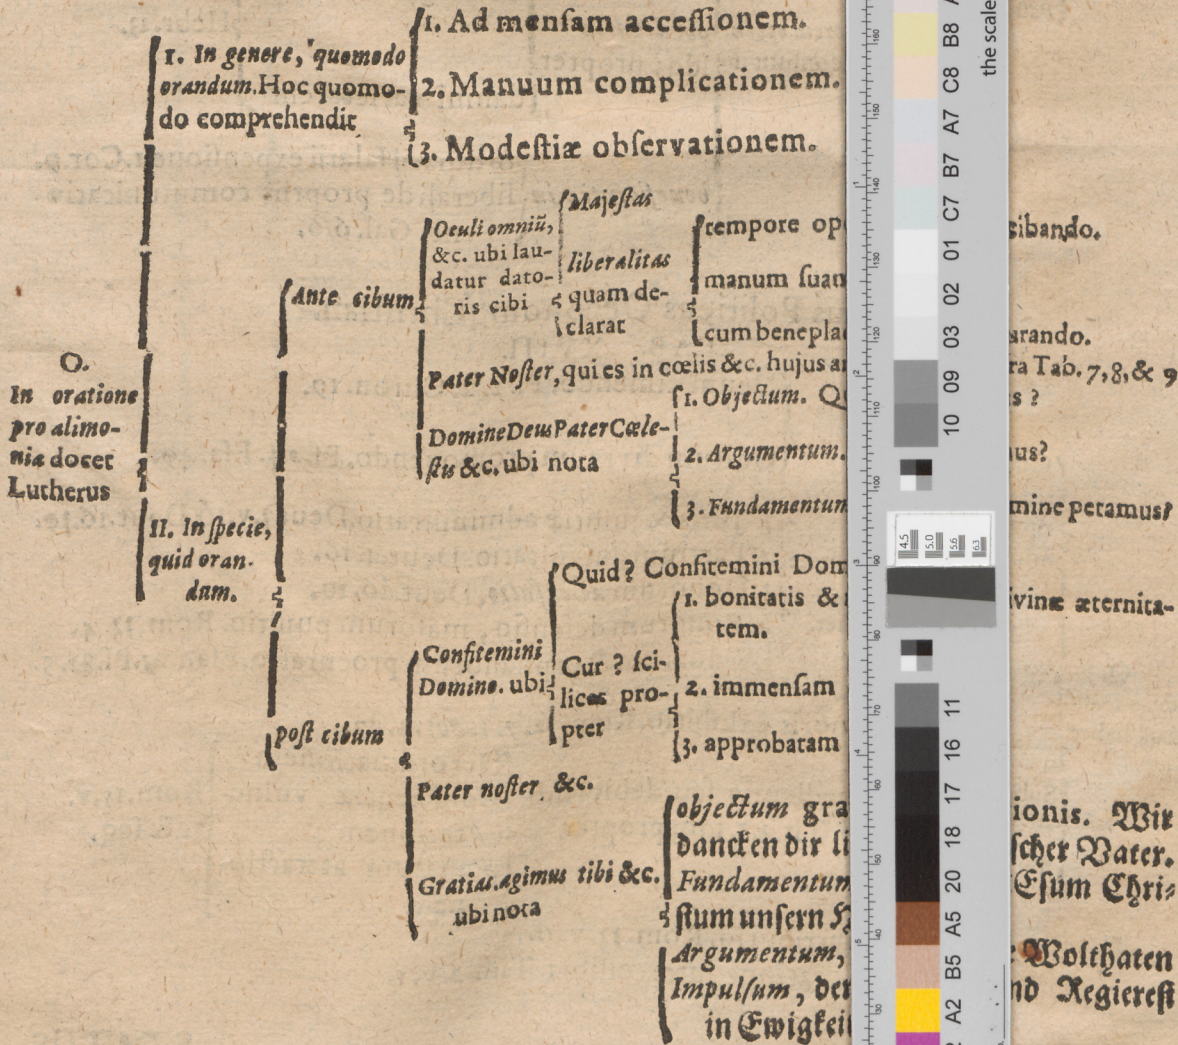 O.
In oratione
pro alimo-
nia docet
Lutherus
I. In genere, quomodo
orandum. Hoc quomo-
do comprehendit
1. Ad mensam accessionem.
2. Manuum complicationem.
3. Modestiæ observationem.
II. In specie,
quid oran-
dum.
Ante cibum
Oculi omniũ,
&c. ubi lau-
datur dato-
ris cibi
Majestas
liberalitas
quam de-
clarat
tempore op
cibando.
manum suam
cum benepla
urando.
Pater Noster, qui es in cœlis &c. hujus
ra Tab. 7, 8, & 9
Domine Deus Pater Cœle-
stis &c. ubi nota
1. Objectum. Q
s ?
2. Argumentum.
us?
3. Fundamentum
mine petamus?
post cibum
Confitemini
Domino. ubi
Quid? Confitemini Dom
Cur ? sci-
licet pro-
pter
1. bonitatis &
ivinæ æternita-
tem.
2. immensam
3. approbatam
Pater noster &c.
Gratias agimus tibi &c.
ubi nota
objectum gra
ionis. Wir
dancken dir li
scher Vater.
Fundamentum
Esum Chri-
stum unsern H
Argumentum,
Wolthaten
Impulsum, der
nd Regierest
in Ewigkeit
the scale
B8
C8
A7
B7
C7
01
02
03
09
10
11
16
17
18
20
A5
B5
A2
160
150
140
130
120
110
100
90
80
70
60
50
40
30
1
2
3
4
5
4.5
5.0
5.6
6.3